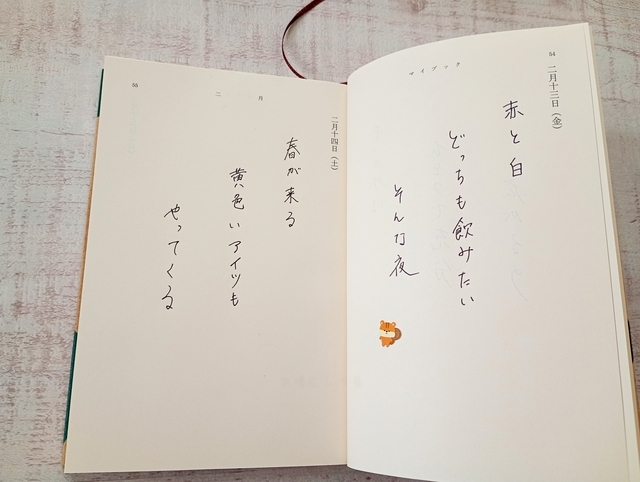 54
マイブック
二月十三日（金）
赤と白
どっちも飲みたい
そんな夜
55
二月
二月十四日（土）
春が来る
黄色いアイツも
やってくる